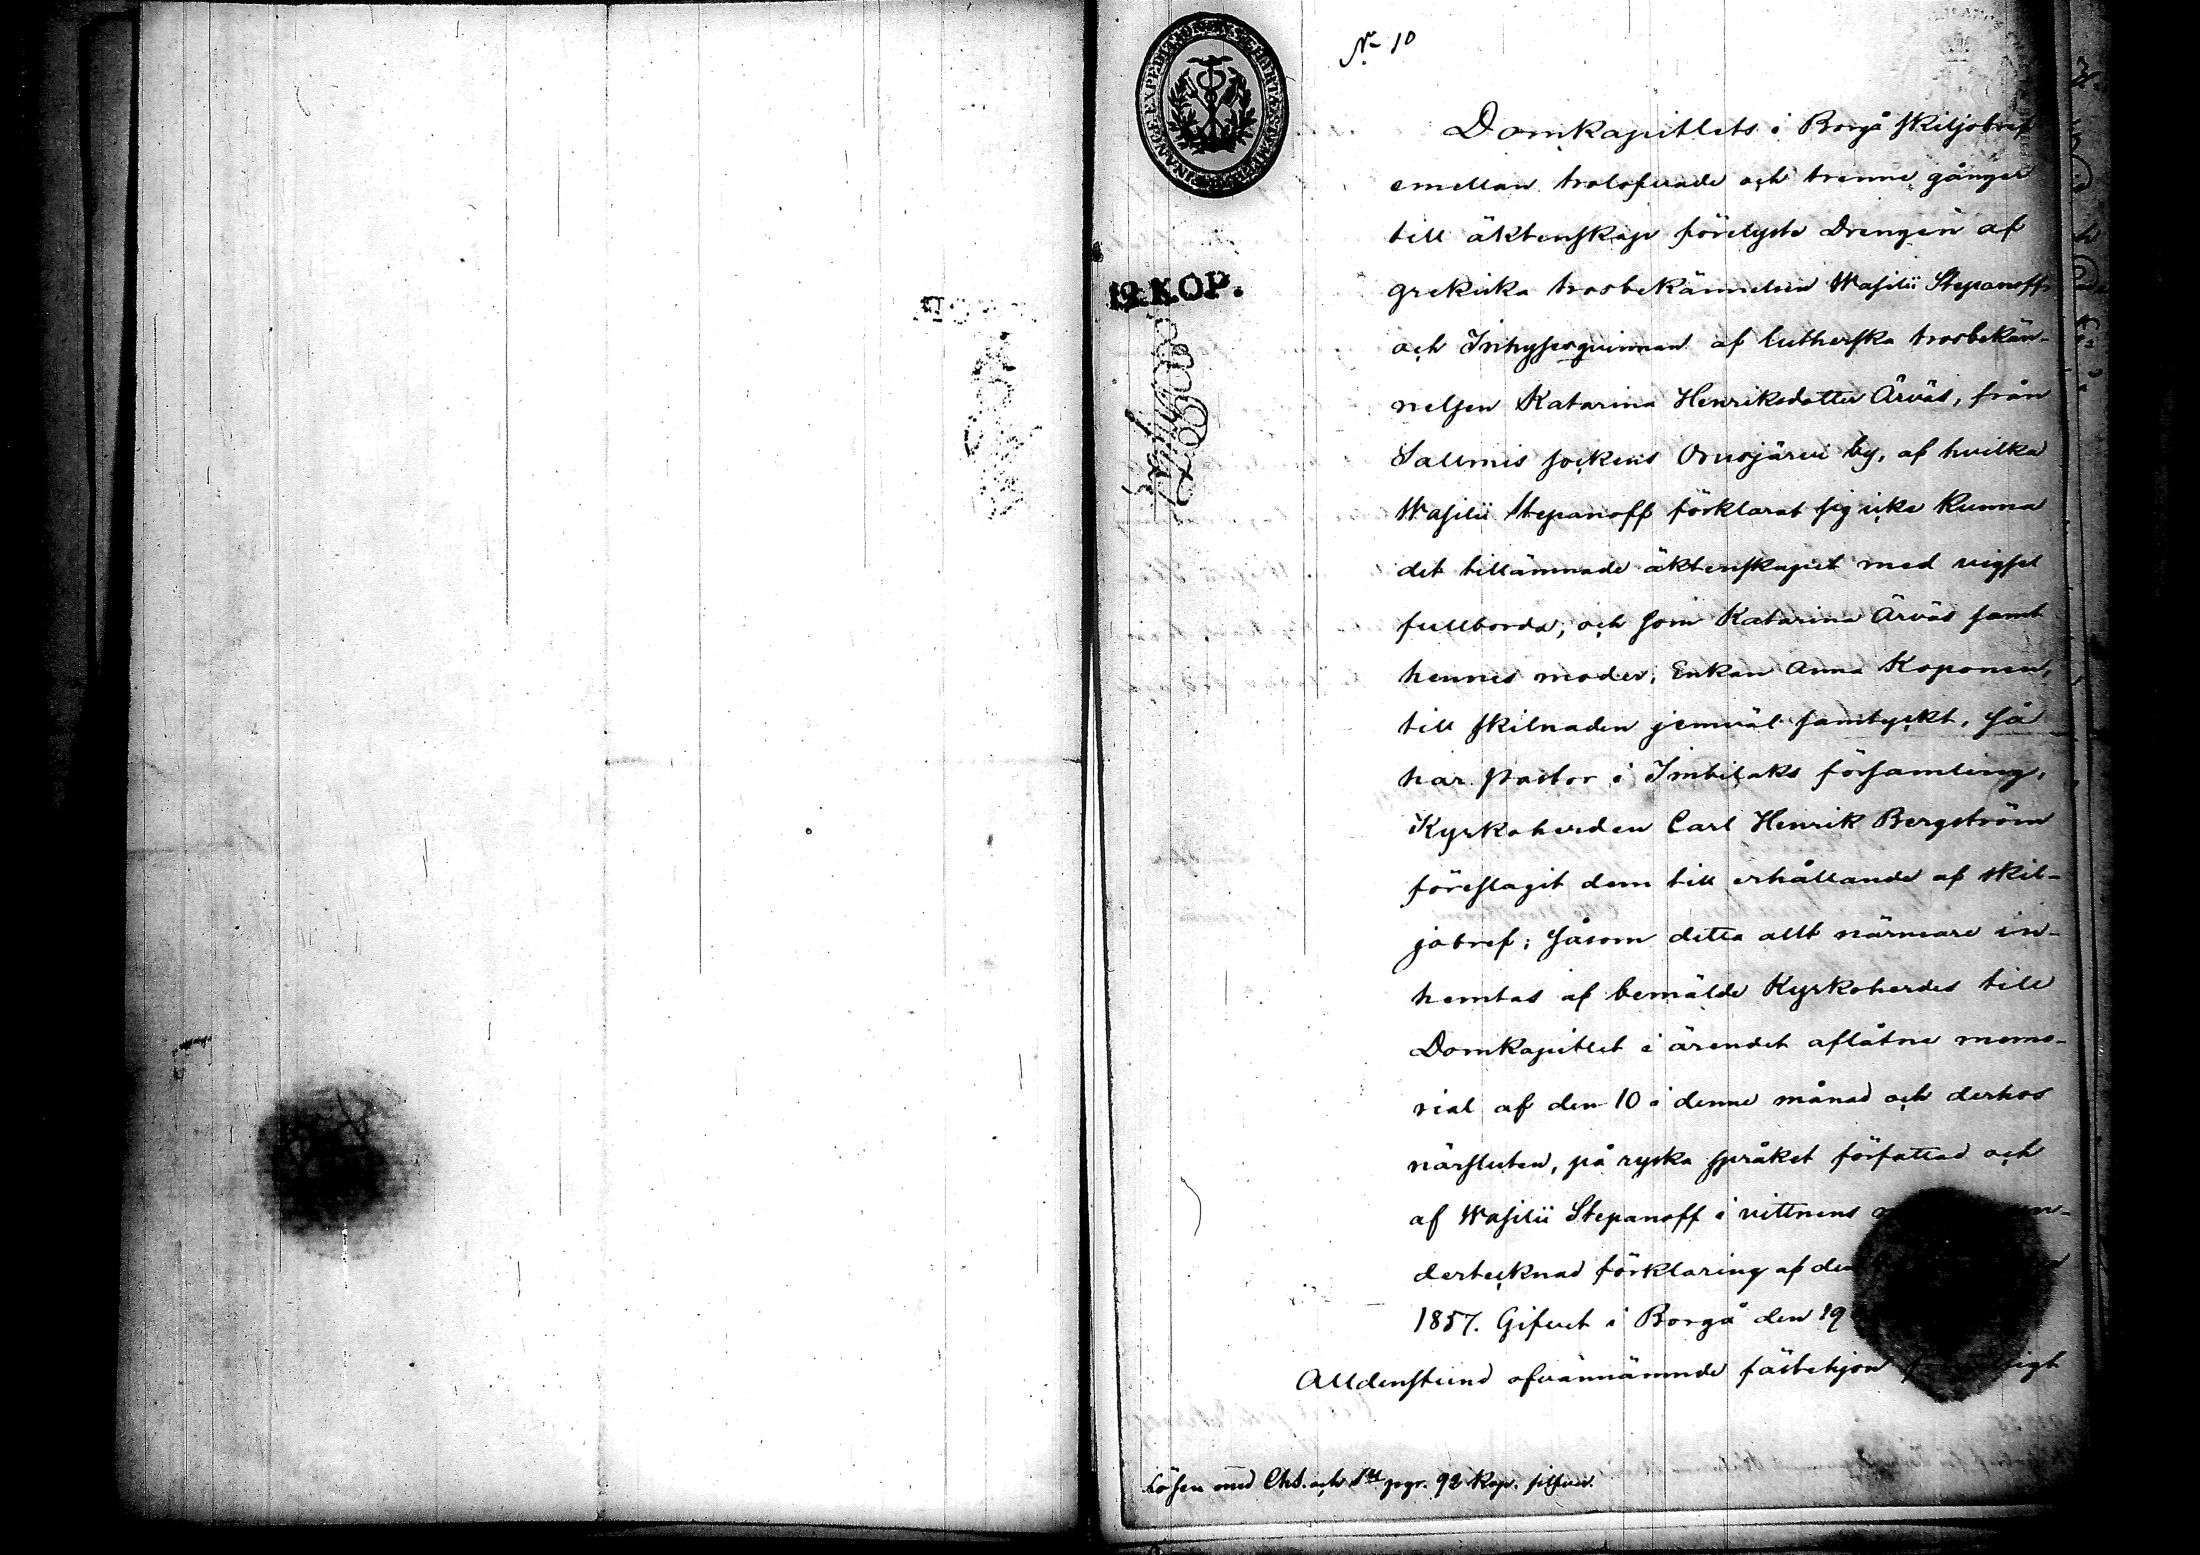 No 10
Domkapitlets i Borgå skiljobref
emellan trolofvade och trenne gånger
till äktenskap förelyste Drengen af
grekiska trosbekännelsen Wasilii Stepanoff
och Inhysesqvinnan af lutherska trosbekän-
nelsen Katarina Henriksdotter Ärväs, från
Sallmis sockens Orusjärvi by, af hvilka
Wasilii Stepanoff förklarat sig icke kunna
det tillämnade äktenskapet med vigsel
fullborda; och som Katarina Ärväs samt
hennes moder, Enkan Anna Koponen,
till skilnaden jemväl samtyckt, så
har Pastor i Imbilaks församling,
Kyrkoherden Carl Henrik Bergström
föreslagit dem till erhållande af skil-
jobref; såsom detta allt närmare in-
hemtas af bemälde Kyrkoherdes till
Domkapitlet i ärendet aflåtne memo-
rial af den 10 i denne månad och derhos
närsluten, på ryska språket författad och
af Wasilii Stepanoff i vittnens un-
dertecknad förklaring af den
1857. Gifvet i Borgå den 19
Alldenstund ofvannämnde fästehjon
12.KOP.
Lösen med Chs. och pgr. 92 Kop. silfver.